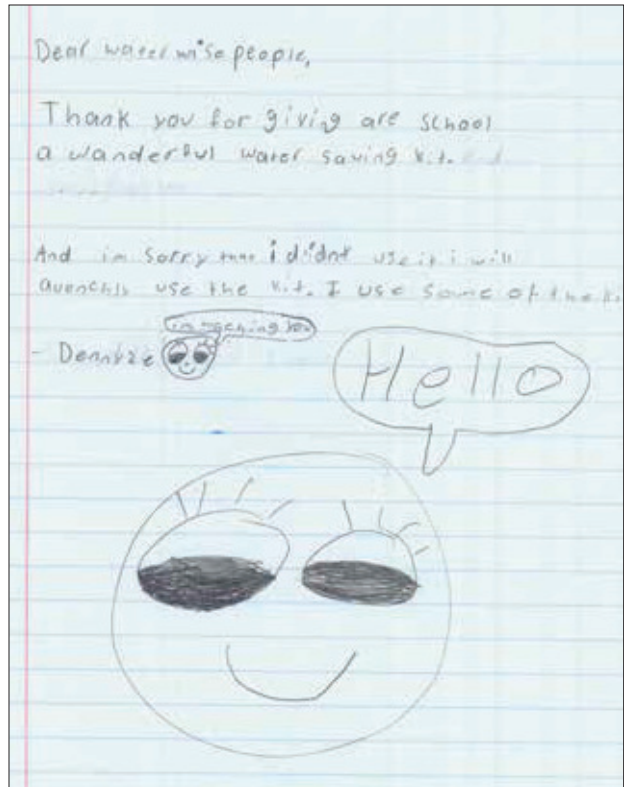 Dear water wise people,
Thank you for giving are school
a wanderful water saving kit.
And im sorry that i didnt use it i will
auenchly use the kit. I use some of the ki
im waching you
- Dennyze
Hello